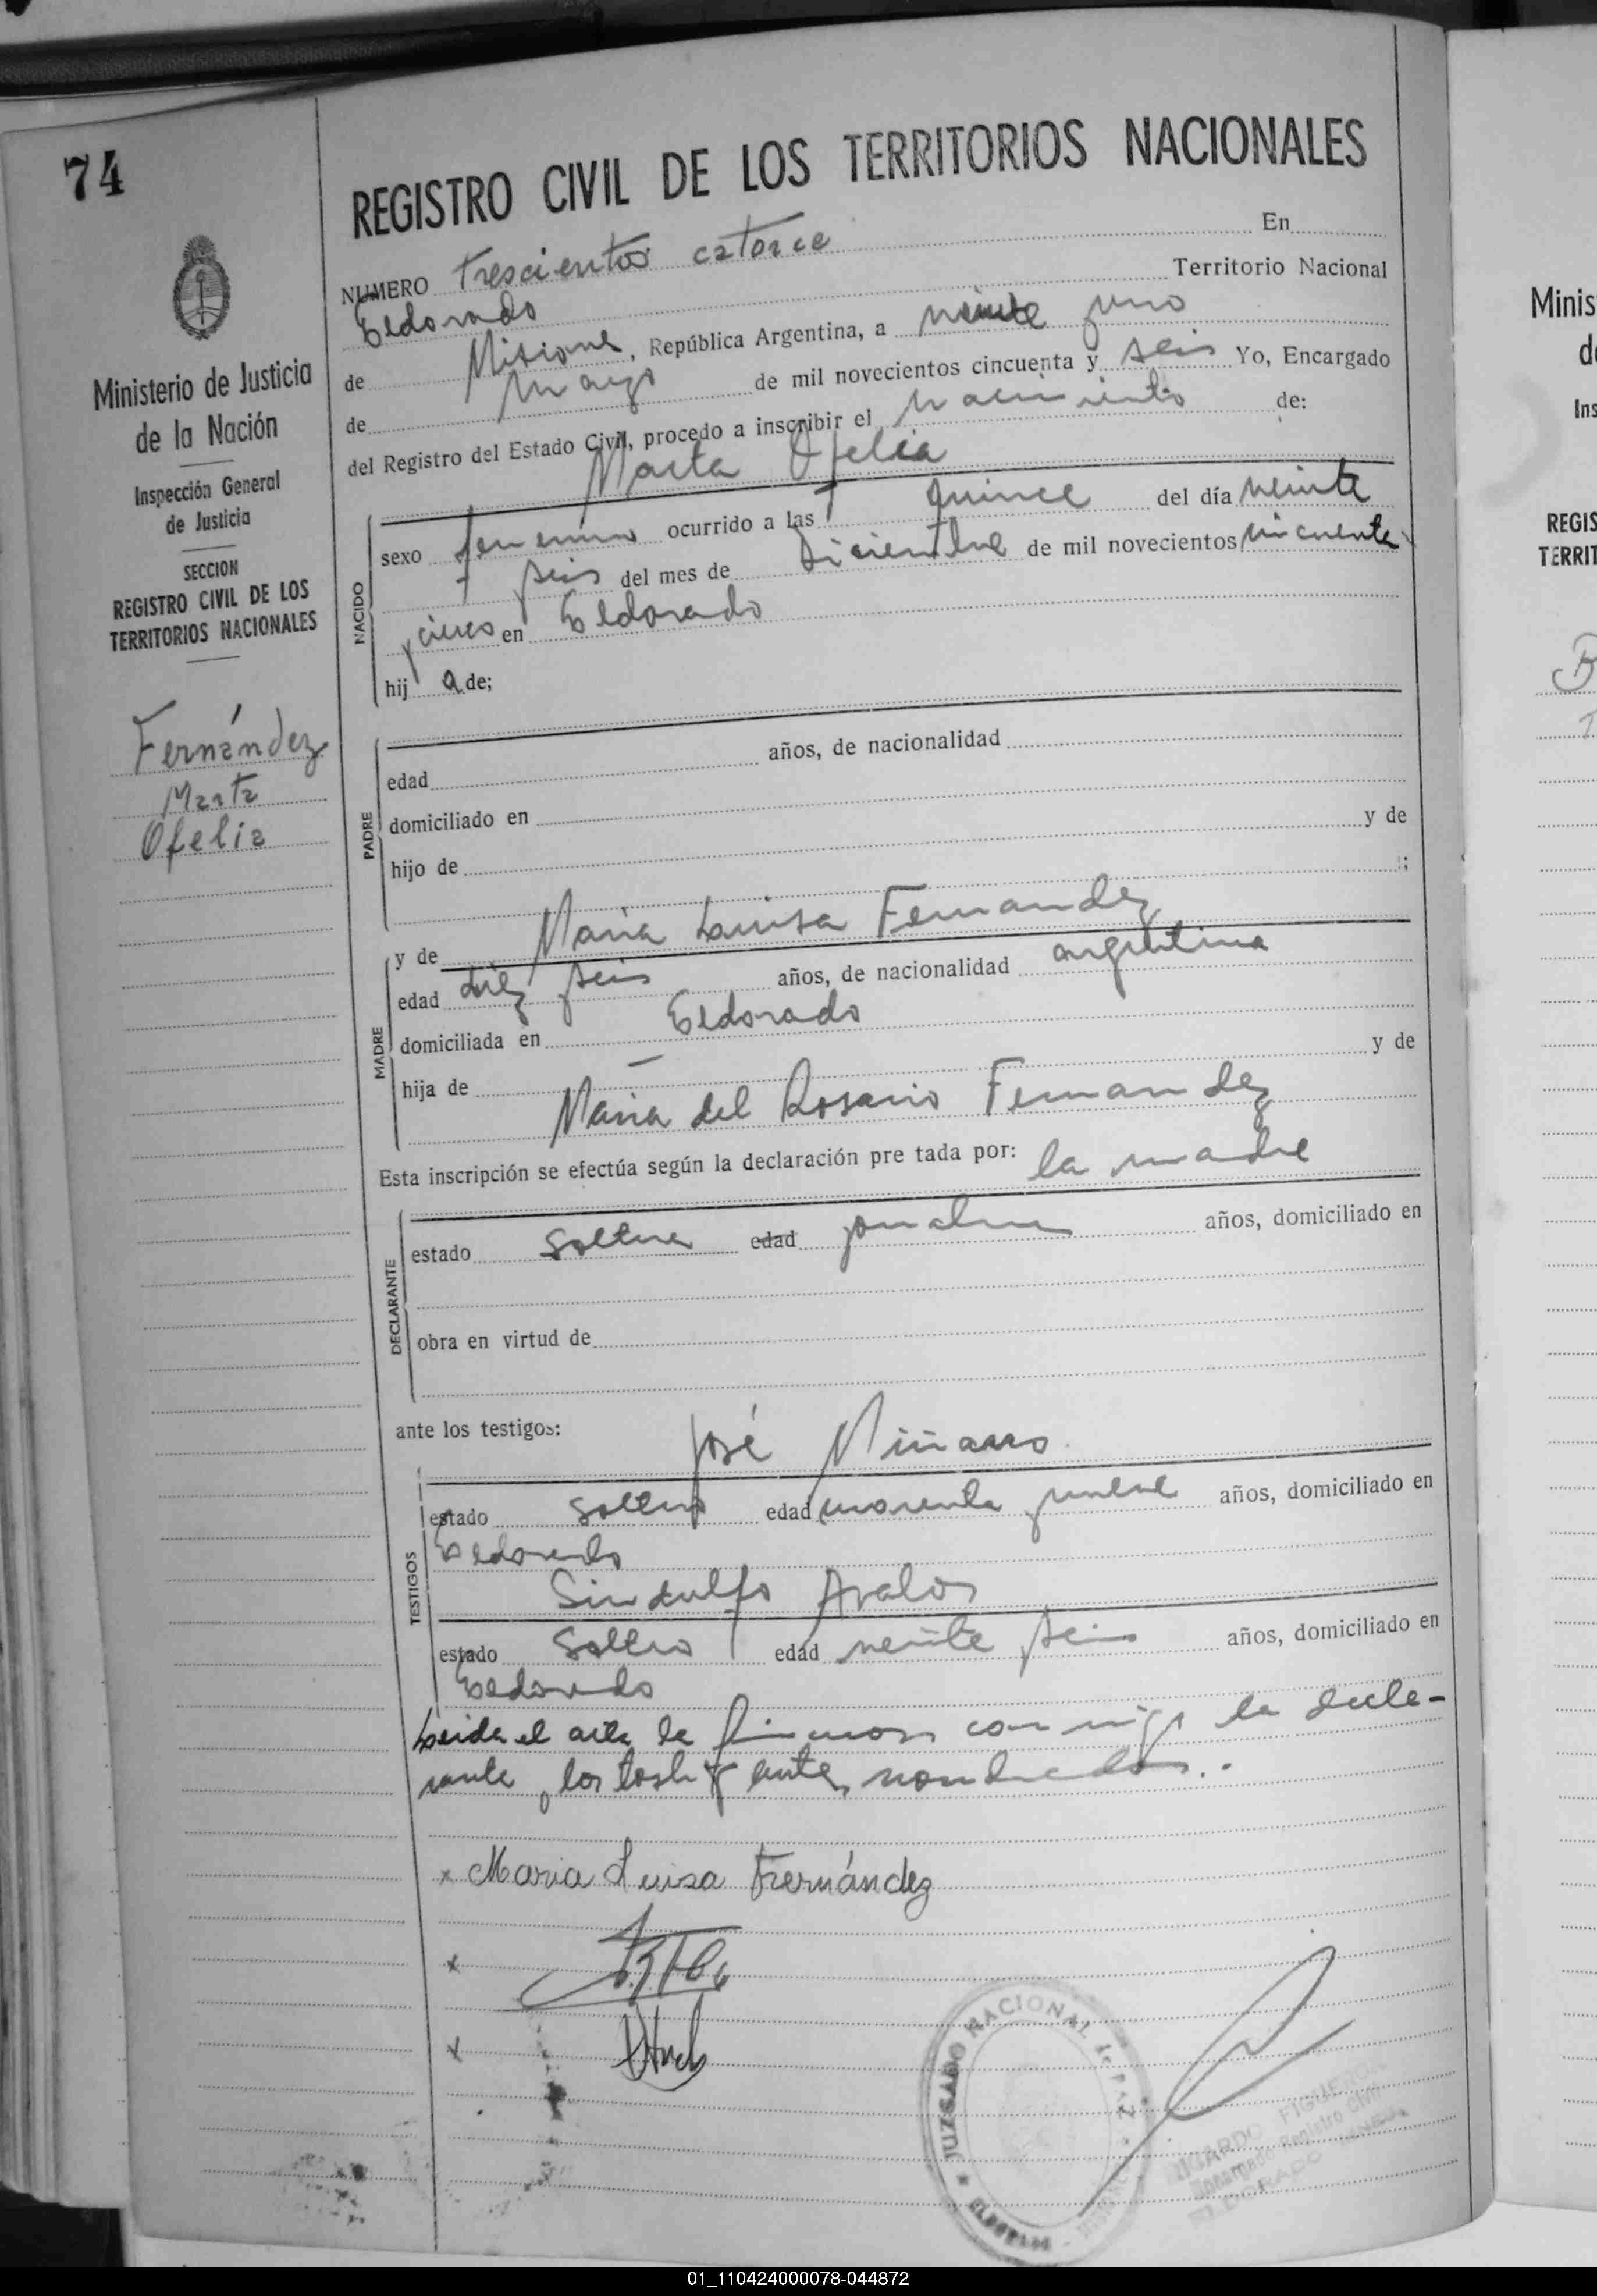 74
REGISTRO CIVIL DE LOS TERRITORIOS NACIONALES
NUMERO Trescientos catorce En
Eldorado Territorio Nacional
de Misiones, República Argentina, a veinte y uno
de mayo de mil novecientos cincuenta y seis Yo, Encargado
del Registro del Estado Civil, procedo a inscribir el nacimiento de:
Marta Ofelia
NACIDO
sexo femenino ocurrido a las quince del día veinte
y seis del mes de Diciembre de mil novecientos cincuenta
y cinco en Eldorado
hij a de;
PADRE
edad años, de nacionalidad
domiciliado en
hijo de y de
;
MADRE
y de Maria Luisa Fernandez
edad diez y seis años, de nacionalidad argentina
domiciliada en Eldorado
hija de — y de
Maria del Rosario Fernandez
Esta inscripción se efectúa según la declaración pre tada por: la madre
DECLARANTE
estado soltera edad años, domiciliado en
obra en virtud de
ante los testigos:
José Miñarro
TESTIGOS
estado soltero edad cuarenta y nueve años, domiciliado en
Eldorado
Sindulfo Avalos
estado soltero edad veinte y seis años, domiciliado en
Eldorado
Leida el acta la firmaron conmigo la decla-
rante y los testigos antes nombrados..
x Maria Luisa Fernández
x
x
JUZGADO NACIONAL de PAZ
ELDORADO - MISIONES
RICARDO FIGUE
Encargado Registro Civil
ELDORADO
Ministerio de Justicia
de la Nación
Inspección General
de Justicia
SECCION
REGISTRO CIVIL DE LOS
TERRITORIOS NACIONALES
Fernández
Marta
Ofelia
Minis
d
Ins
REGIS
TERRIT
01_110424000078-044872